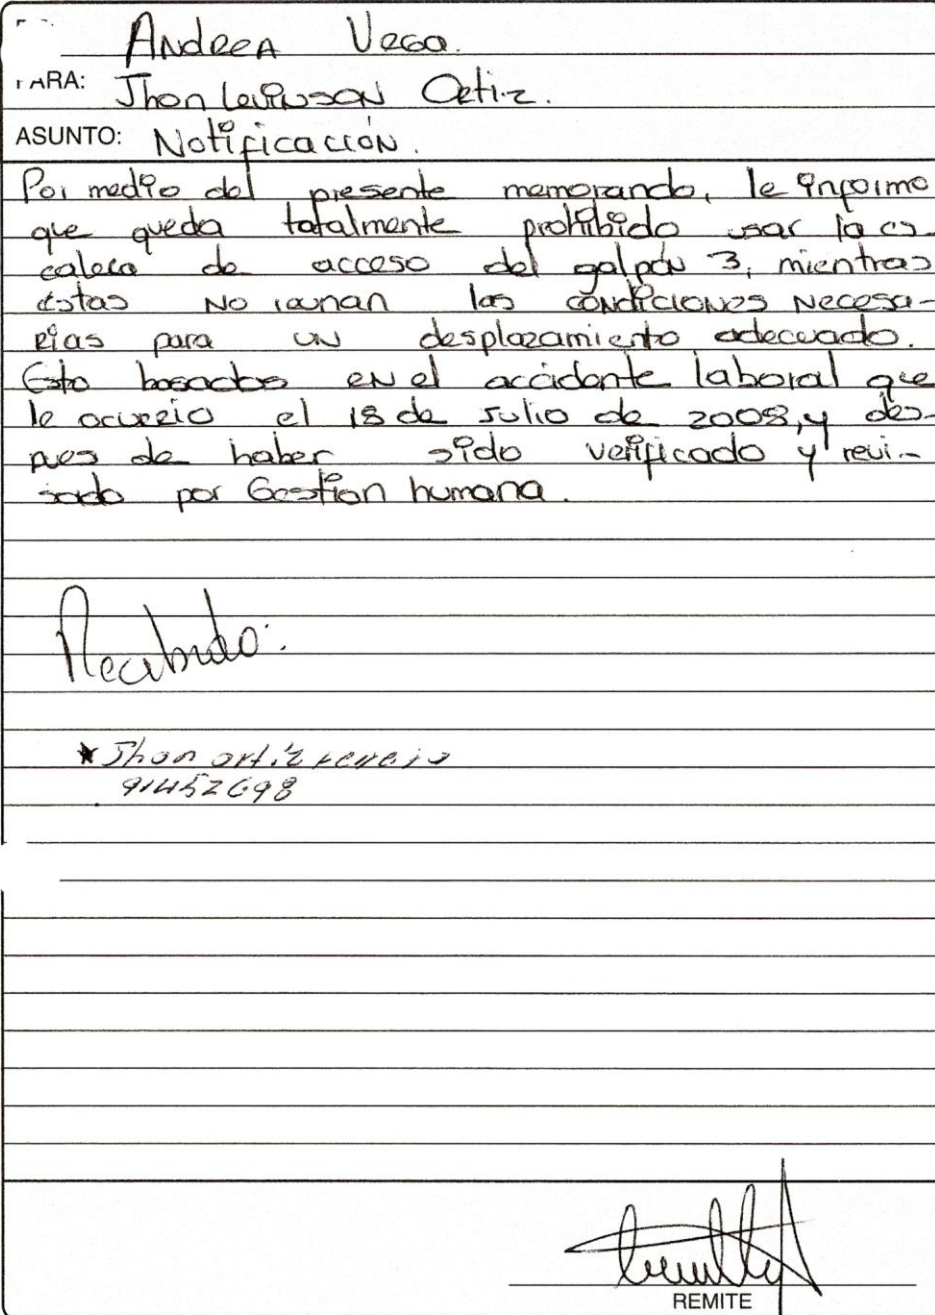 Andrea Vega.
PARA: Jhon Levinson Ortiz.
ASUNTO: Notificación.
Por medio del presente memorando, le informo
que queda totalmente prohibido usar la es-
calera de acceso del galpón 3, mientras
éstas no reunan las condiciones necesa-
rias para un desplazamiento adecuado.
Esto basados en el accidente laboral que
le ocurrio el 18 de Julio de 2008, y des-
pues de haber sido verificado y revi-
sado por Gestion humana.
Recibido:
* Jhon ortiz
91452698
REMITE